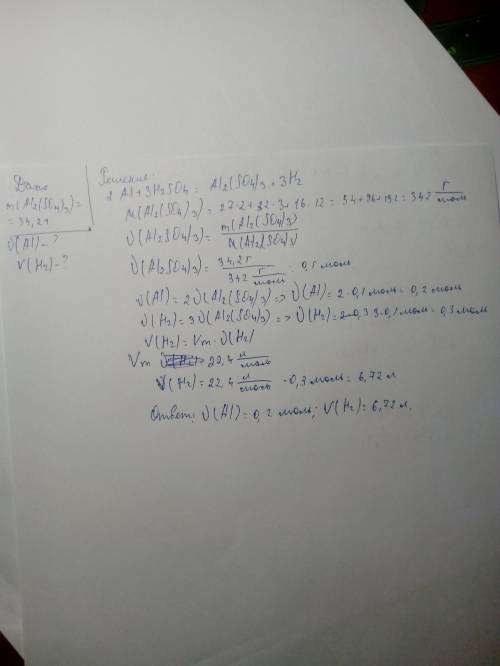 Дано
m(Al₂(SO₄)₃)=
= 34,2г
ν(Al)-?
V(H₂)-?
Решение:
2Al+3H₂SO₄ = Al₂(SO₄)₃ + 3H₂
M(Al₂(SO₄)₃) = 27·2+32·3+16·12 = 54+96+192 = 342 г/моль
ν(Al₂(SO₄)₃)= m(Al₂(SO₄)₃)/M(Al₂(SO₄)₃)
ν(Al₂(SO₄)₃)= 34,2 г/342 г/моль = 0,1 моль
ν(Al) = 2ν(Al₂(SO₄)₃) => ν(Al) = 2·0,1 моль = 0,2 моль
ν(H₂) = 3ν(Al₂(SO₄)₃) => ν(H₂) = 3·0,1 моль = 0,3 моль
V(H₂) = Vm·ν(H₂)
Vm = 22,4 л/моль
V(H₂) = 22,4 л/моль · 0,3 моль = 6,72 л
Ответ: ν(Al) = 0,2 моль; V(H₂) = 6,72 л.